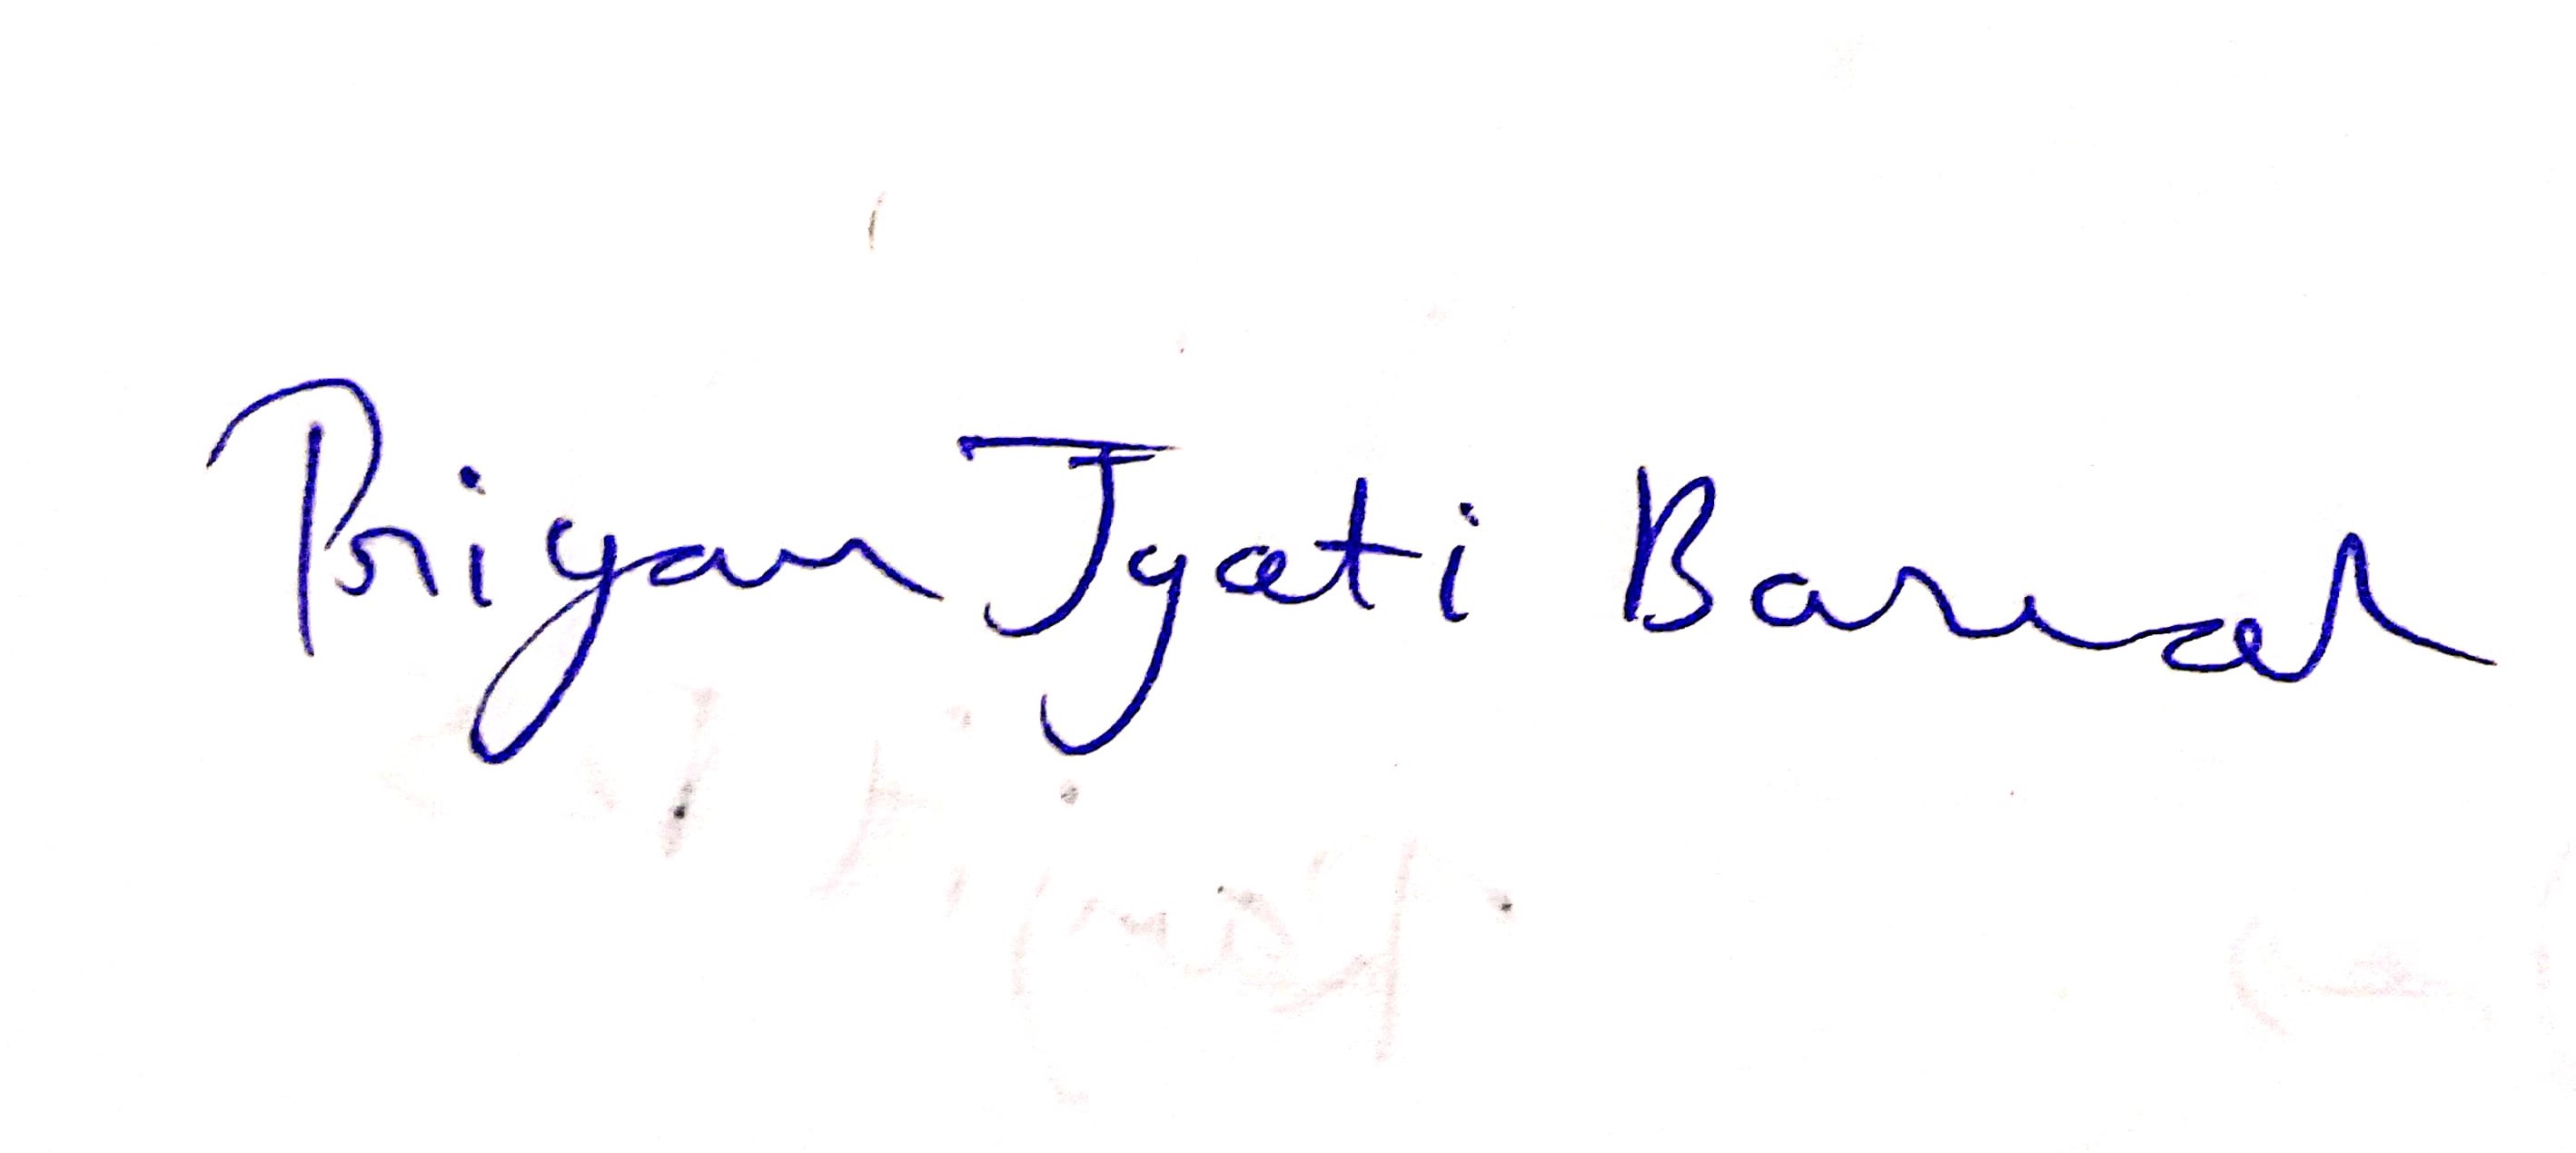 Priyan Jyoti Baruah